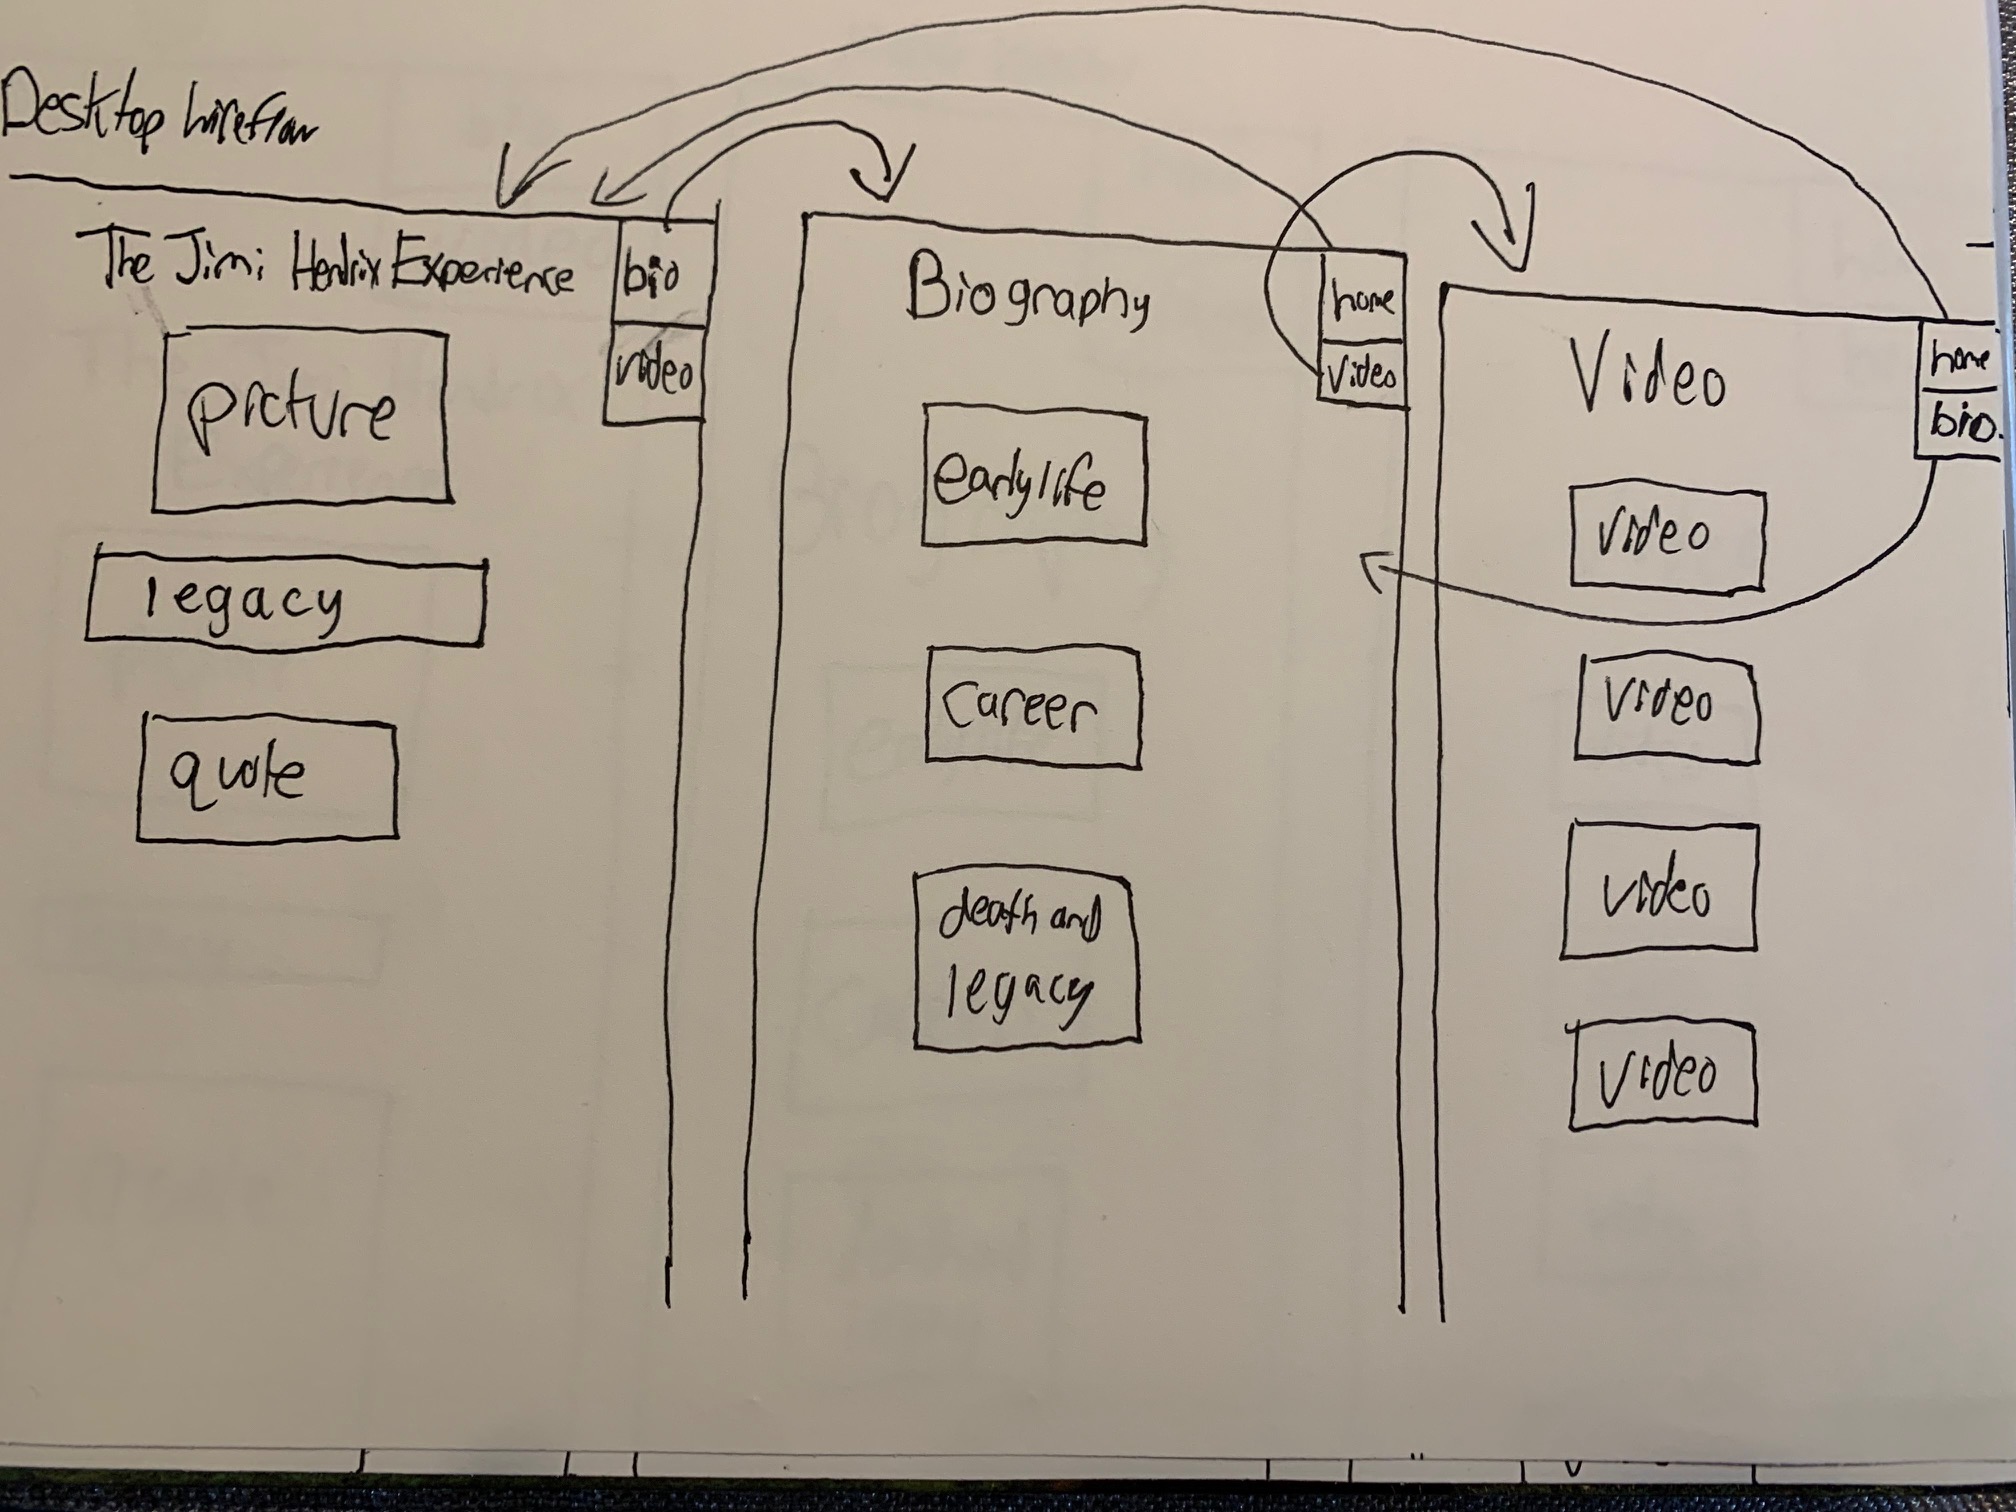 Desktop wireflow
The Jimi Hendrix Experience
bio
video
picture
legacy
quote
Biography
home
video
early life
career
death and
legacy
Video
home
bio.
video
video
video
video